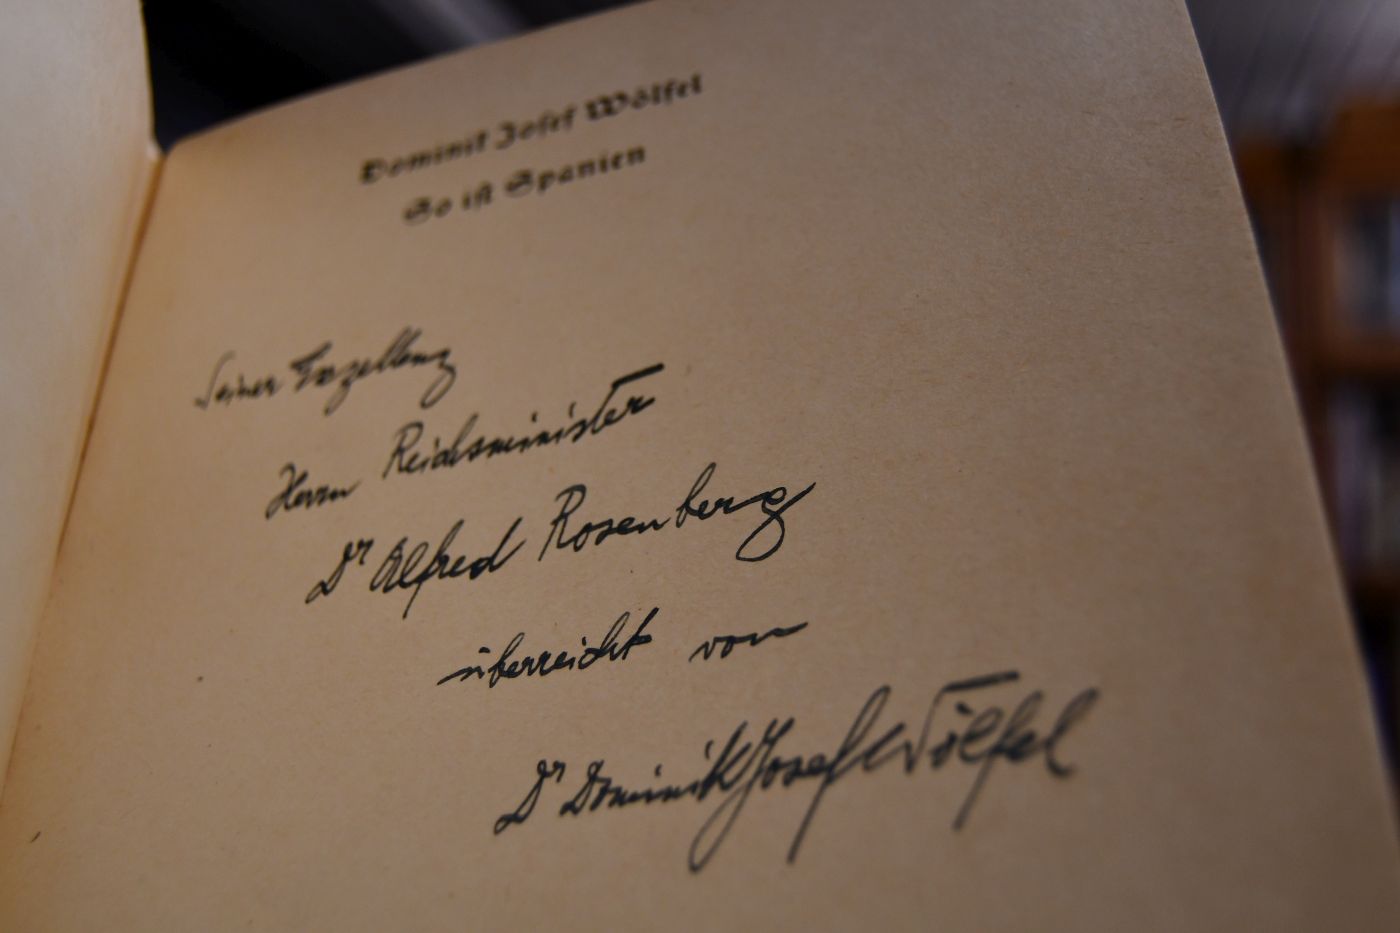 Dominik Josef Wölfel
So ist Spanien
Seiner Exzellenz
Herrn Reichsminister
Dr Alfred Rosenberg
überreicht von
Dr Dominik Josef Wölfel